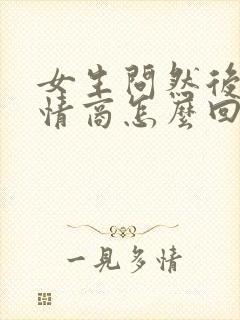 女生問然後
情商怎麼回
一見多情